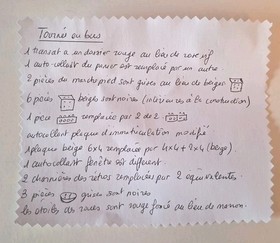 Tournée en bus
1 transat a un dossier rouge au lieu de rose vif
1 auto-collant du panier est remplacé par un autre
2 pièces du marchepied sont grises au lieu de beiges
6 pièces beiges sont noires (intérieures à la construction)
1 pièce remplacée par 2 de 2
autocollant plaque d'immatriculation modifié
1 plaque beige 6x4 remplacée par 4x4 + 2x4 (beige).
1 autocollant fenêtre est différent.
2 charnières des rétros remplacées par 2 équivalentes.
3 pièces grises sont noires
les étoiles des roues sont rouge foncé au lieu de marron.